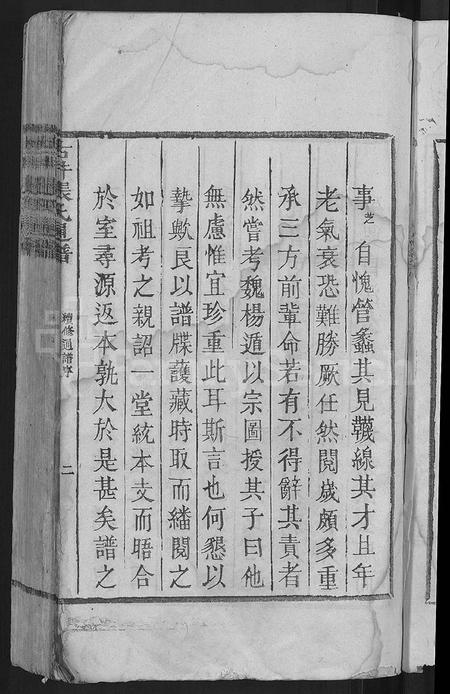 事芝自愧管蠡其見韈線其才且年
老氣衰恐難勝厥任然閱嵗頗多重
承三方前輩命若有不得辭其責者
然嘗考魏楊遁以宗圖授其子曰他
無慮惟宜珍重此耳斯言也何懇以
摯歟艮以譜牒護藏時取而繙閱之
如祖考之親詔一堂統本支而晤合
於室尋源返本孰大於是甚矣譜之
張氏通譜
續修通譜序
二